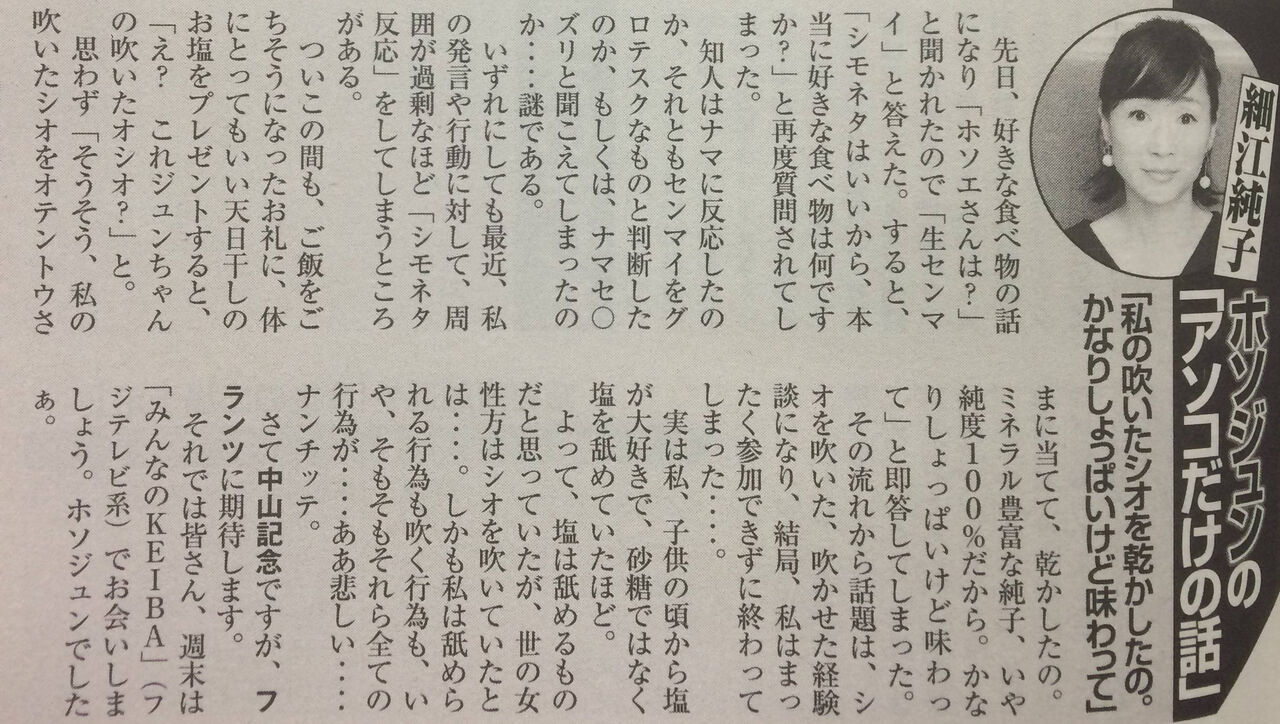 細江純子
ホソジュンの
「アソコだけの話」
「私の吹いたシオを乾かしたの。
かなりしょっぱいけど味わって」
先日、好きな食べ物の話
になり「ホソエさんは？」
と聞かれたので「生センマ
イ」と答えた。すると、
「シモネタはいいから、本
当に好きな食べ物は何です
か？」と再度質問されてし
まった。
知人はナマに反応したの
か、それともセンマイをグ
ロテスクなものと判断した
のか、もしくは、ナマセ〇
ズリと聞こえてしまったの
か‥‥謎である。
いずれにしても最近、私
の発言や行動に対して、周
囲が過剰なほど「シモネタ
反応」をしてしまうところ
がある。
ついこの間も、ご飯をご
ちそうになったお礼に、体
にとってもいい天日干しの
お塩をプレゼントすると、
「え？　これジュンちゃん
の吹いたオシオ？」と。
思わず「そうそう、私の
吹いたシオをオテントウさ
まに当てて、乾かしたの。
ミネラル豊富な純子、いや
純度100％だから。かな
りしょっぱいけど味わっ
て」と即答してしまった。
その流れから話題は、シ
オを吹いた、吹かせた経験
談になり、結局、私はまっ
たく参加できずに終わって
しまった‥‥。
実は私、子供の頃から塩
が大好きで、砂糖ではなく
塩を舐めていたほど。
よって、塩は舐めるもの
だと思っていたが、世の女
性方はシオを吹いていたと
は‥‥。しかも私は舐めら
れる行為も吹く行為も、い
や、そもそもそれら全ての
行為が‥‥ああ悲しい‥‥
ナンチッテ。
さて中山記念ですが、フ
ランツに期待します。
それでは皆さん、週末は
「みんなのKEIBA」（フ
ジテレビ系）でお会いしま
しょう。ホソジュンでした
ぁ。